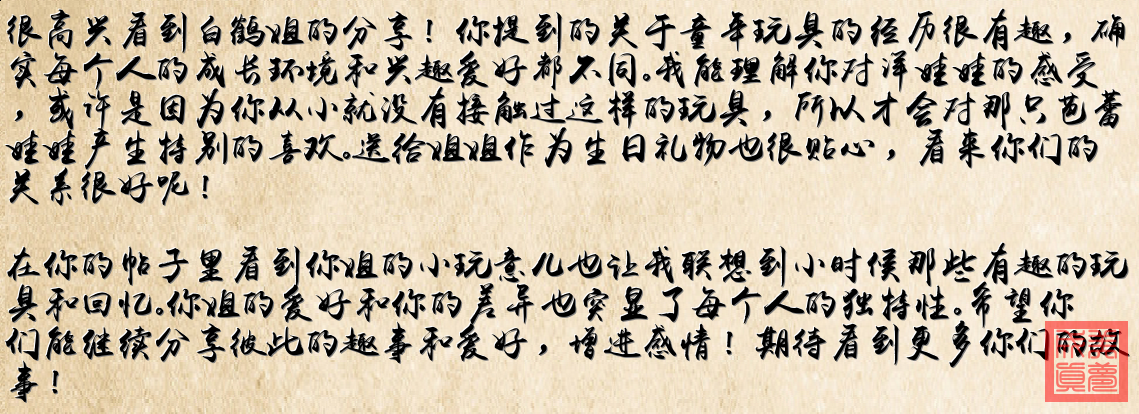 很高兴看到白鹤姐的分享！你提到的关于童年玩具的经历很有趣，确
实每个人的成长环境和兴趣爱好都不同。我能理解你对洋娃娃的感受
，或许是因为你从小就没有接触过这样的玩具，所以才会对那只芭蕾
娃娃产生特别的喜欢。送给姐姐作为生日礼物也很贴心，看来你们的
关系很好呢！
在你的帖子里看到你姐的小玩意儿也让我联想到小时侯那些有趣的玩
具和回忆。你姐的爱好和你的差异也突显了每个人的独特性。希望你
们能继续分享彼此的趣事和爱好，增进感情！期待看到更多你们的故
事！